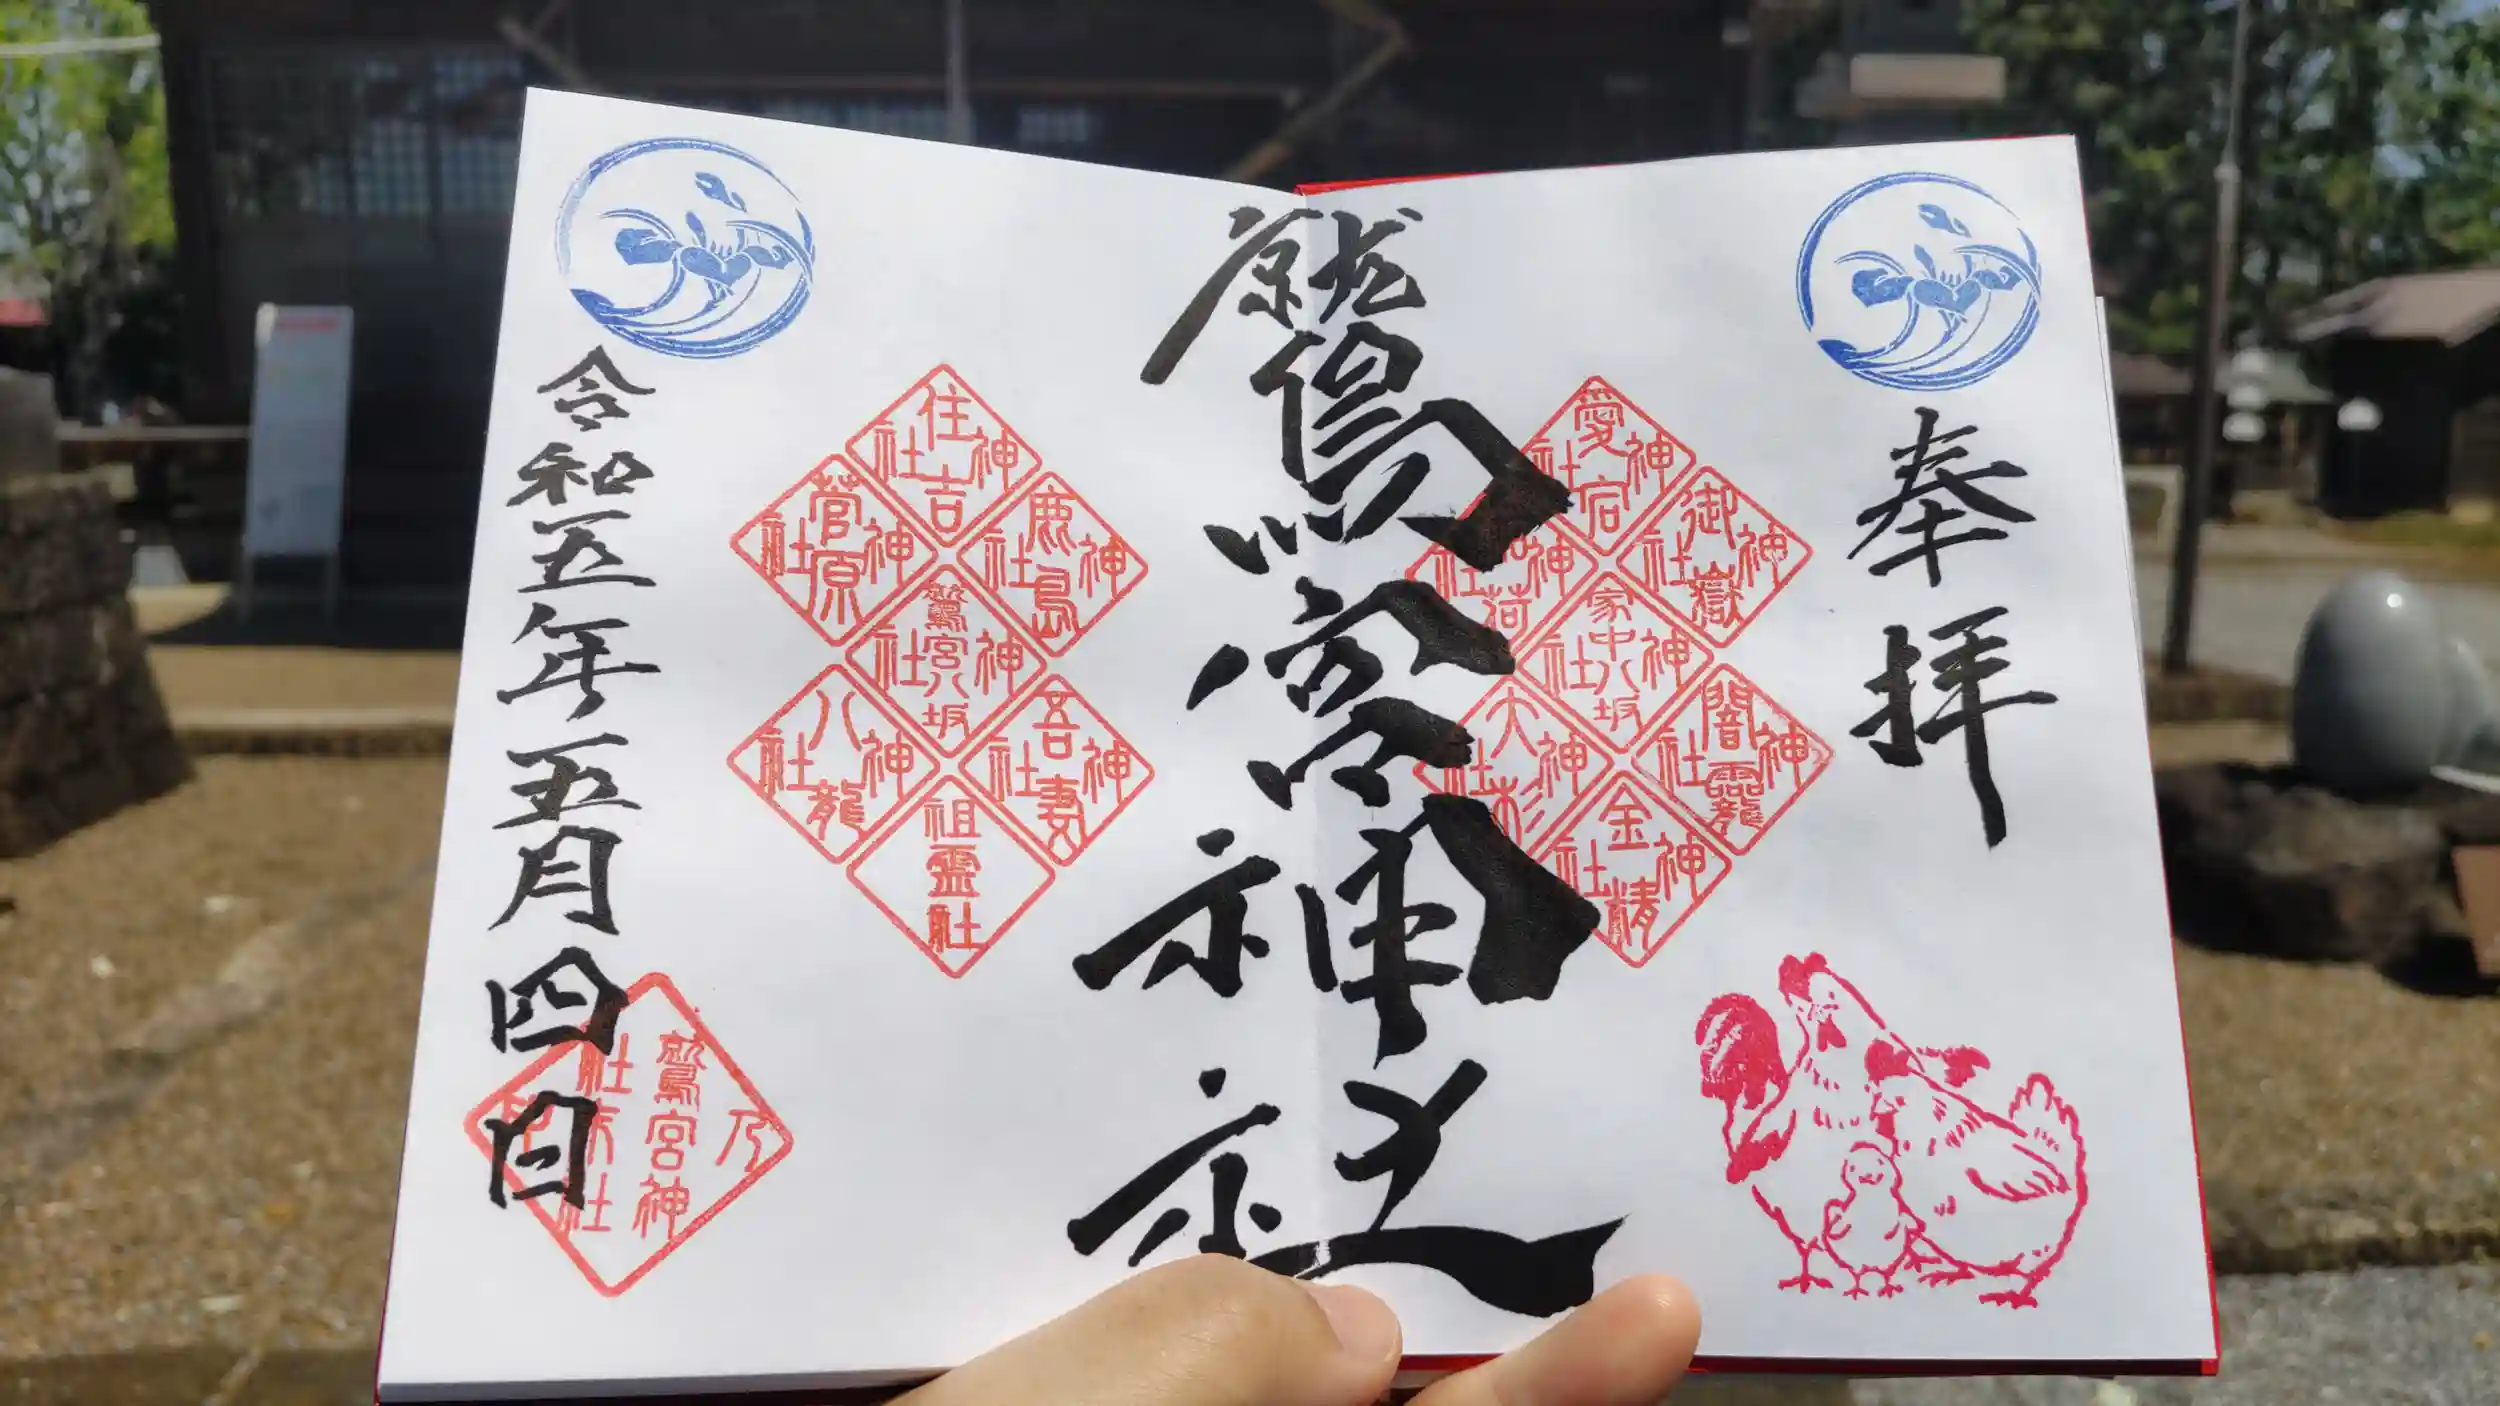 奉拝
鷲宮神社
令和五年五月四日
愛宕神社
御嶽神社
家中八坂神社
闇龗神社
大杉神社
金精神社
住吉神社
鹿島神社
菅原神社
鷲宮八坂神社
吾妻神社
八龍神社
祖霊社
鷲宮神社末社乃